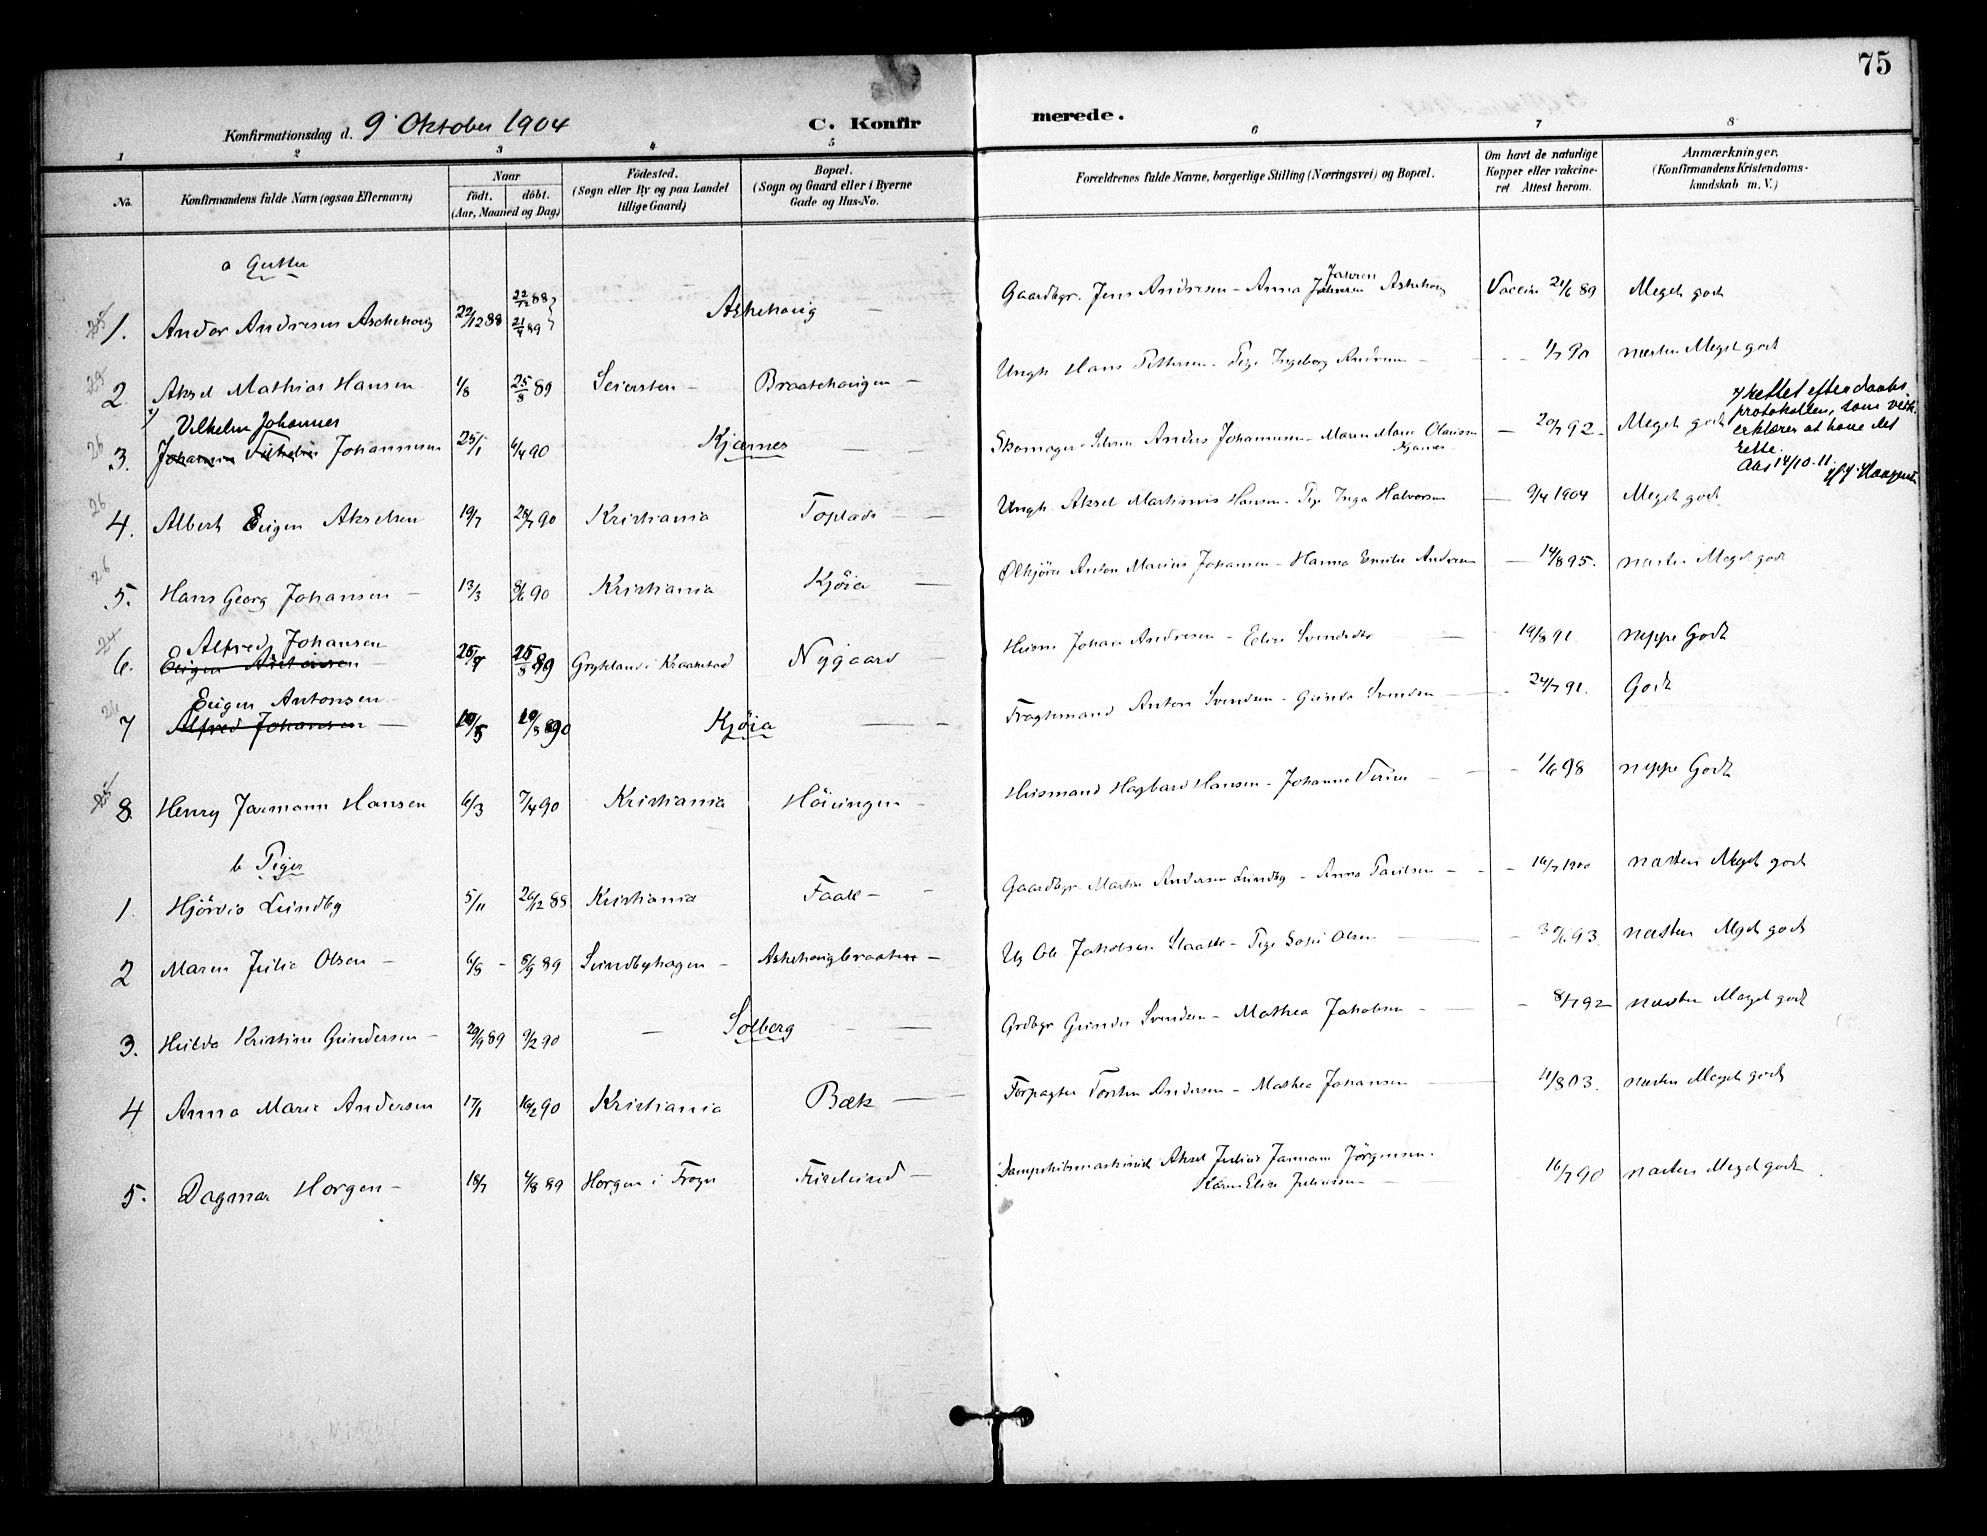 75
Konfirmationsdag d. 9' Oktober 1904
C. Konfirmerede.
1 2 3 4 5 6 7 8
No. Konfirmandens fulde Navn (ogsaa Efternavn) Naar födt. döbt. (Aar, Maaned og Dag) Födested. (Sogn eller By og paa Landet tillige Gaard) Bopæl. (Sogn og Gaard eller i Byerne Gade og Hus-No. Forældrenes fulde Navne, borgerlige Stilling (Næringsvei) og Bopæl. Om havt de naturlige Kopper eller vakcineret Attest herom. Anmærkninger. (Konfirmandens Kristendomskundskab m. V.)
a Gutter
1. Andor Andresen Askehoug 22/12 88 22/12 88 21/4 89 Askehoug — Gaardbgr. Jens Andresen - Anna Jansen Askehoug Vaccin 21/6 89 Meget godt
2. Aksel Mathias Hansen 1/8 25/8 89 Seiersten - Braatehougen - Ungk Hans Pettersen - Pige Ingeborg Andersen - 1/7 90 næsten Meget godt
x) Vilhelm Johannes
3. Johannes Vilhelm Johannesen 25/1 6/4 90 Kjærnes — Skomager Andreas Johannesen - Maren Marie Olausen Kjærnes — 20/7 92 - Meget godt
x) rettet efter daabsprotokollen, som vedk. erklærer at have det rette. Aas 14/10-11.
4. Albert Eugen Akselsen 19/7 90 Kristiania Toplads — Ungk. Aksel Martinius Hansen - Pige Inga Halvorsen — 9/4 1904 Meget godt
5. Hans Georg Johansen - 13/3 8/6 90 Kristiania Kjöia — Ölkjörer Anton Marius Johansen - Hanna Emilie Andersen — 14/8 95. næsten Meget godt
Alfred Johansen
6. Eugen Antonsen - 25/8 89 Grykland i Kraakstad Nygaard — Husm Johan Andresen - Edine Svendsdtr — 19/8 91 neppe Godt
Eugen Antonsen
7 Alfred Johansen — 90 Kjöia — Fragtemand Anton Svendsen - Gunda Svendsen — 24/7 91. Godt
8. Henry Jarmann Hansen 6/3 7/4 90 Kristiania Höiungen - Husmand Hagbard Hansen - Johanne — 1/6 98 neppe Godt
b Piger
1. Hjördis Lundby 5/11 26/12 88 Kristiania Faale - Gaardbgr. Martin Andersen Lundby - Anna Paulsen - 16/7 1900 næsten Meget godt
2 Maren Julie Olsen - 6/8 - 8/9 89 Lundbyhagen - Askehougbraaten - Ug Ole Jakobsen Slaatte - Pige Sofie Olsen — 30/6 93. næsten Meget godt
3. Hulda Kristine Gundersen - 29/9 89 9/2 90 — Solberg — Grdbgr Gunder Svendsen - Mathea Jakobsen — 8/7 92 næsten Meget godt
4 Anna Marie Andersen 17/1 16/2 90 Kristiania Bæk — Forpagter Torsten Andersen - Mathea Johansen — 11/8 03. næsten Meget godt
5. Dagmar Horgen - 18/7 4/8 89 Horgen i Frogn Friselund - Dampskibsmaskinist Aksel Julius Jarmann Jörgensen. Karen Elise Juliussen — 16/7 90 næsten Meget godt.